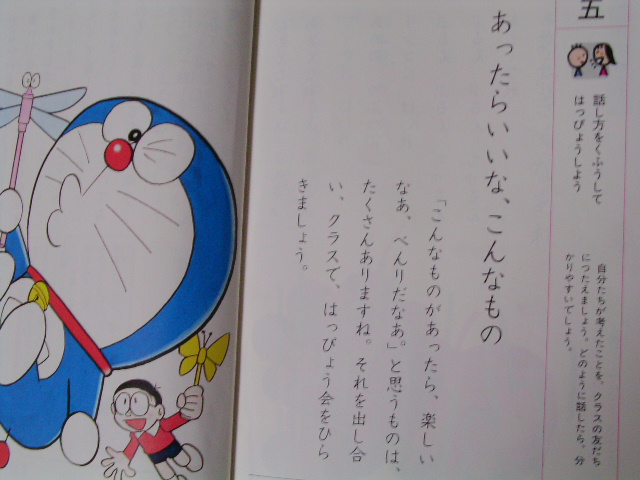 五
話し方をくふうして
はっぴょうしよう
自分たちが考えたことを、クラスの友だち
につたえましょう。どのように話したら、分
かりやすいでしょう。
あったらいいな、こんなもの
「こんなものがあったら、楽しい
なあ、べんりだなあ。」と思うものは、
たくさんありますね。それを出し合
い、クラスで、はっぴょう会をひら
きましょう。